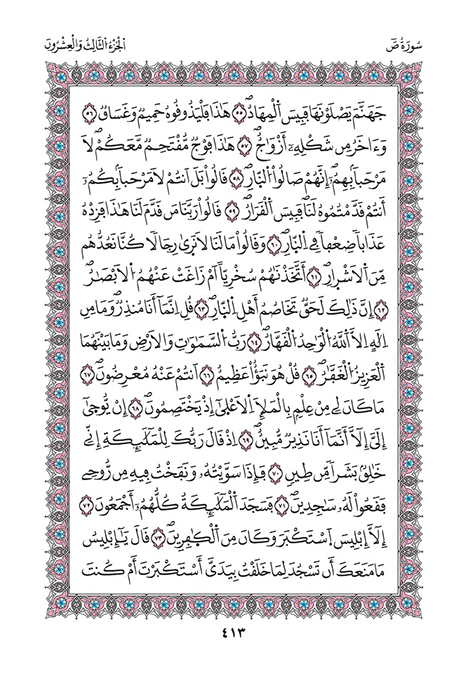 سُورَةُ صٓ
اَلْجُزْءُ اُلثَّالِثُ وَالْعِشْرُونَ
جَهَنَّمَ يَصْلَوْنَهَا فَبِيسَ اَلْمِهَادُ ٥٥ هَٰذَا فَلْيَذُوقُوهُ حَمِيمٌ وَغَسَاقٌ ٥٦
وَءَاخَرُ مِن شَكْلِهِۦٓ أَزْوَٰجٌ ٥٧ هَٰذَا فَوْجٌ مُّقْتَحِمٌ مَّعَكُمْ لَا
مَرْحَباَۢ بِهِمُۥٓ إِنَّهُمْ صَالُواْ اُلنّ۪ارِ ٥٨ قَالُواْ بَلَ اَنتُمْ لَا مَرْحَباَۢ بِكُمُۥٓ
أَنتُمْ قَدَّمْتُمُوهُ لَنَا فَبِيسَ اَلْقَرَارُ ٥٩ قَالُواْ رَبَّنَا مَن قَدَّمَ لَنَا هَٰذَا فَزِدْهُ
عَذَاباٗ ضِعْفاٗ فِي اِلنّ۪ارِ ٦٠ وَقَالُواْ مَا لَنَا لَا نَر۪ىٰ رِجَالاٗ كُنَّا نَعُدُّهُم
مِّنَ اَلَاشْر۪ارِ ٦١ أَتَّخَذْنَٰهُمْ سُخْرِيّاً اَمْ زَاغَتْ عَنْهُمُ اُلَابْصَٰرُ
٦٢ إِنَّ ذَٰلِكَ لَحَقّٞ تَخَاصُمُ أَهْلِ اِلنّ۪ارِ ٦٣ قُلِ اِنَّمَآ أَنَا مُنذِرٞ وَمَا مِنِ
اِلَٰهٍ اِلَّا اَللَّهُ اُلْوَٰحِدُ اُلْقَهَّارُ ٦٤ رَبُّ اُلسَّمَٰوَٰتِ وَالَارْضِ وَمَا بَيْنَهُمَا
اَلْعَزِيزُ اُلْغَفَّٰرُ ٦٥ قُلْ هُوَ نَبَؤٌاْ عَظِيمٌ ٦٦ اَنتُمْ عَنْهُ مُعْرِضُونَ ٦٧
مَا كَانَ لِي مِنْ عِلْمِۢ بِالْمَلَإِ اِلَاعْل۪ىٰٓ إِذْ يَخْتَصِمُونَ ٦٨ إِنْ يُّوح۪ىٰٓ
إِلَيَّ إِلَّآ أَنَّمَآ أَنَا نَذِيرٞ مُّبِينٌ ٦٩ اِذْ قَالَ رَبُّكَ لِلْمَلَٰٓئِكَةِ إِنِّي
خَٰلِقُۢ بَشَراٗ مِّن طِينٖ ٧٠ فَإِذَا سَوَّيْتُهُۥ وَنَفَخْتُ فِيهِ مِن رُّوحِي
فَقَعُواْ لَهُۥ سَٰجِدِينَ ٧١ فَسَجَدَ اَلْمَلَٰٓئِكَةُ كُلُّهُمُۥٓ أَجْمَعُونَ ٧٢
إِلَّآ إِبْلِيسَ اَسْتَكْبَرَ وَكَانَ مِنَ اَلْكٰ۪فِرِينَ ٧٣ قَالَ يَٰٓإِبْلِيسُ
مَا مَنَعَكَ أَن تَسْجُدَ لِمَا خَلَقْتُ بِيَدَيَّ أَسْتَكْبَرْتَ أَمْ كُنتَ
٤١٣